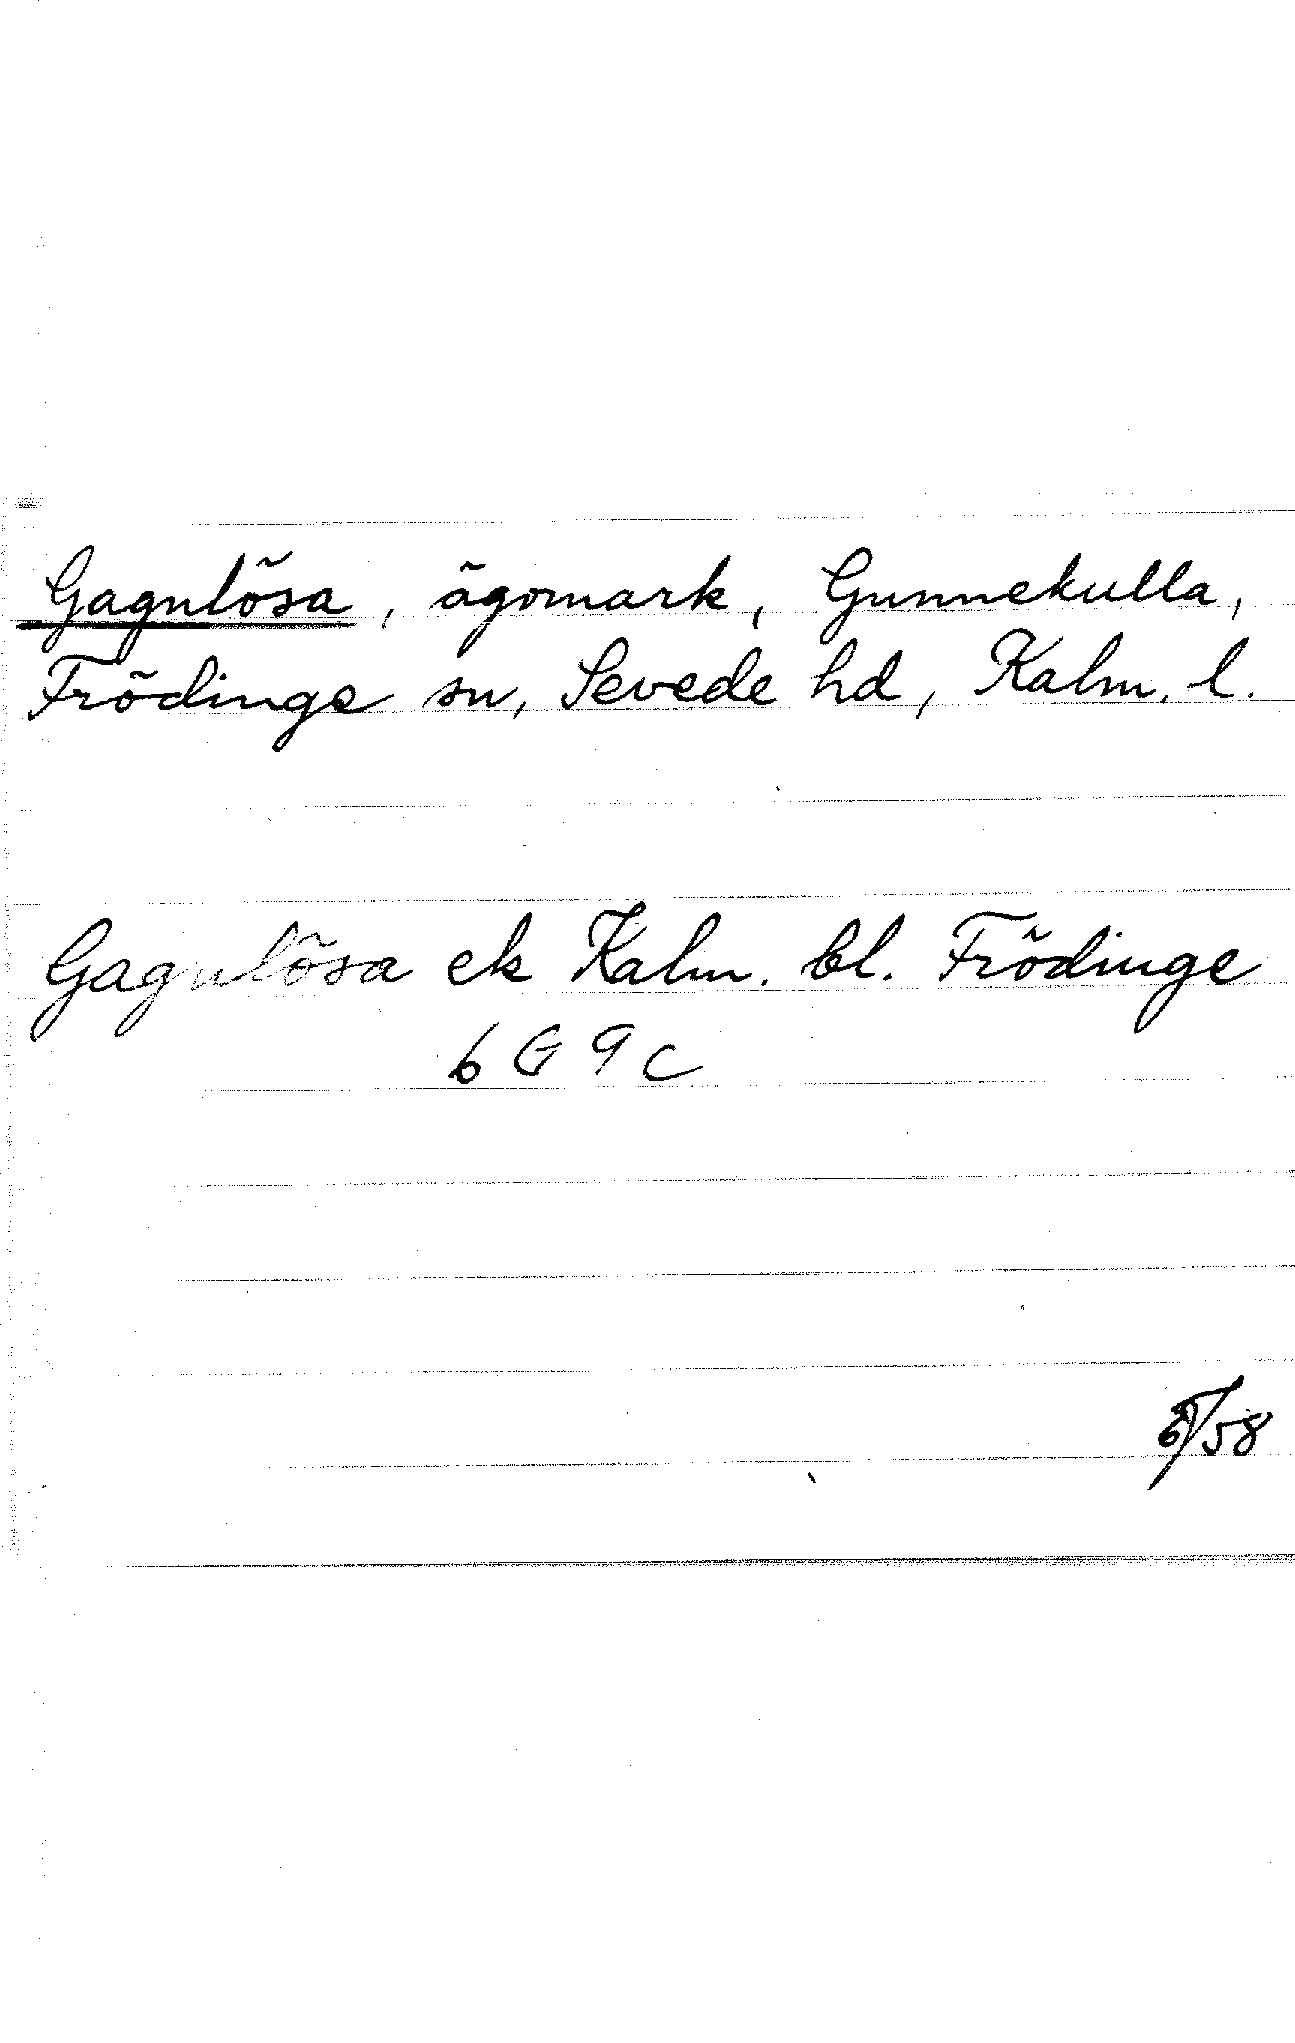 Gagnlösa, ägomark, Gunnekulla,
Frödinge sn, Sevede hd, Kalm. l.
Gagnlösa ek Kalm. bl. Frödinge
6 G 9 c
/58